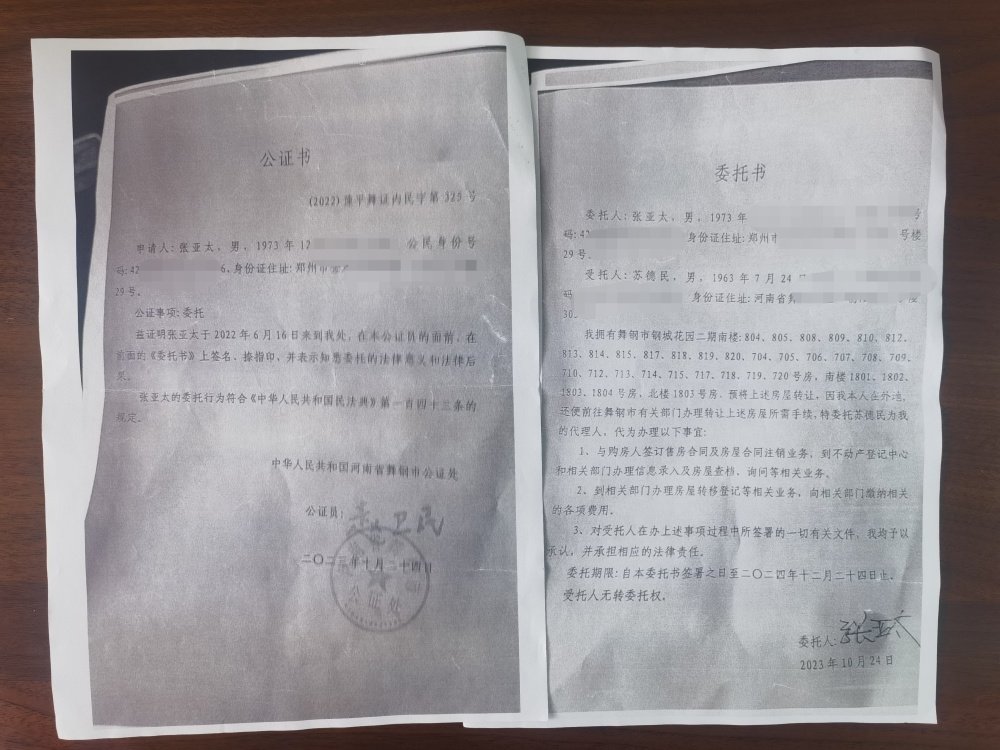 公证书
(2022)豫平舞证内民字第325号
申请人:张亚太,男,1973年12 公民身份号
码:42 6.身份证住址:郑州市
29号。
公证事项:委托
兹证明张亚太于2022年6月16日来到我处,在本公证员的面前,在
前面的《委托书》上签名、捺指印,并表示知悉委托的法律意义和法律后
果。
张亚太的委托行为符合《中华人民共和国民法典》第一百四十三条的
规定。
中华人民共和国河南省舞钢市公证处
公证员:
二〇二三年十月二十四日
公证处
委托书
委托人:张亚太,男,1973年 号
码:42 身份证住址:郑州市 号楼
29号。
受托人:苏德民,男,1963年7月24
码 身份证住址:河南省舞
30.
我拥有舞钢市钢城花园二期南楼:804、805、808、809、810、812、
813、814、815、817、818、819、820、704、705、706、707、708、709、
710、712、713、714、715、717、718、719、720号房,南楼1801、1802、
1803、1804号房,北楼1803号房。预将上述房屋转让,因我本人在外地,
还便前往舞钢市有关部门办理转让上述房屋所需手续,特委托苏德民为我
的代理人,代为办理以下事宜:
1、与购房人签订售房合同及房屋合同注销业务,到不动产登记中心
和相关部门办理信息录入及房屋查档、询问等相关业务。
2、到相关部门办理房屋转移登记等相关业务,向相关部门缴纳相关
的各项费用。
3、对受托人在办上述事项过程中所签署的一切有关文件,我均予以
承认,并承担相应的法律责任。
委托期限:自本委托书签署之日至二〇二四年十二月二十四日止。
受托人无转委托权。
委托人:张亚太
2023年10月24日